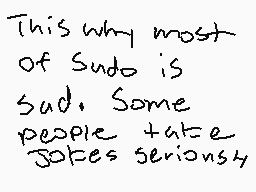 This why most
of Sudo is
sad. Some
people take
Jokes seriously